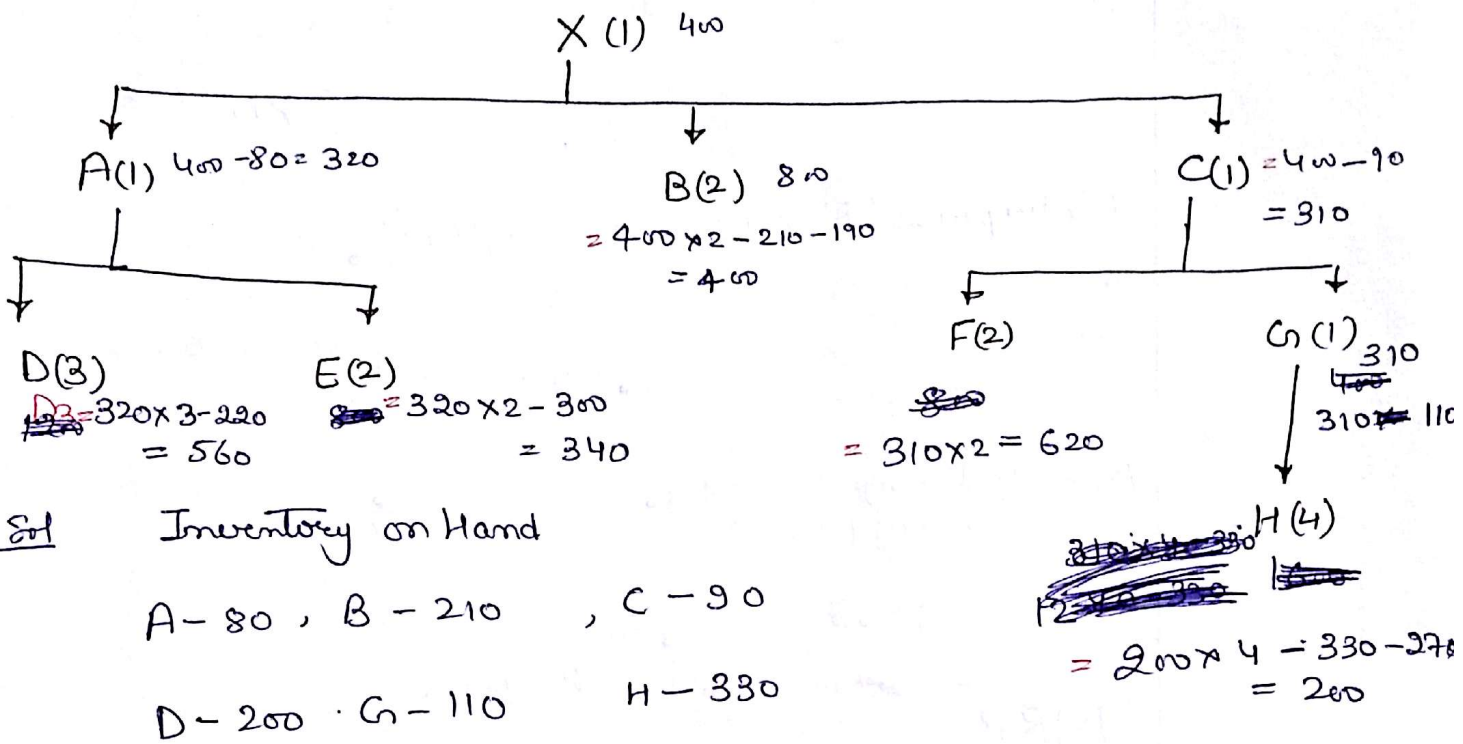 X (1) 400
A(1) 400 - 80 = 320
B(2) 800
= 400 × 2 - 210 - 190
= 400
C(1) = 400 - 90
= 310
D(3)
D3 = 320 × 3 - 220
= 560
E(2)
= 320 × 2 - 300
= 340
F(2)
= 310 × 2 = 620
G(1)
310
310 110
H(4)
= 200 × 4 - 330 - 270
= 200
Sol Inventory on Hand
A - 80 , B - 210 , C - 90
D - 200 . G - 110 H - 330